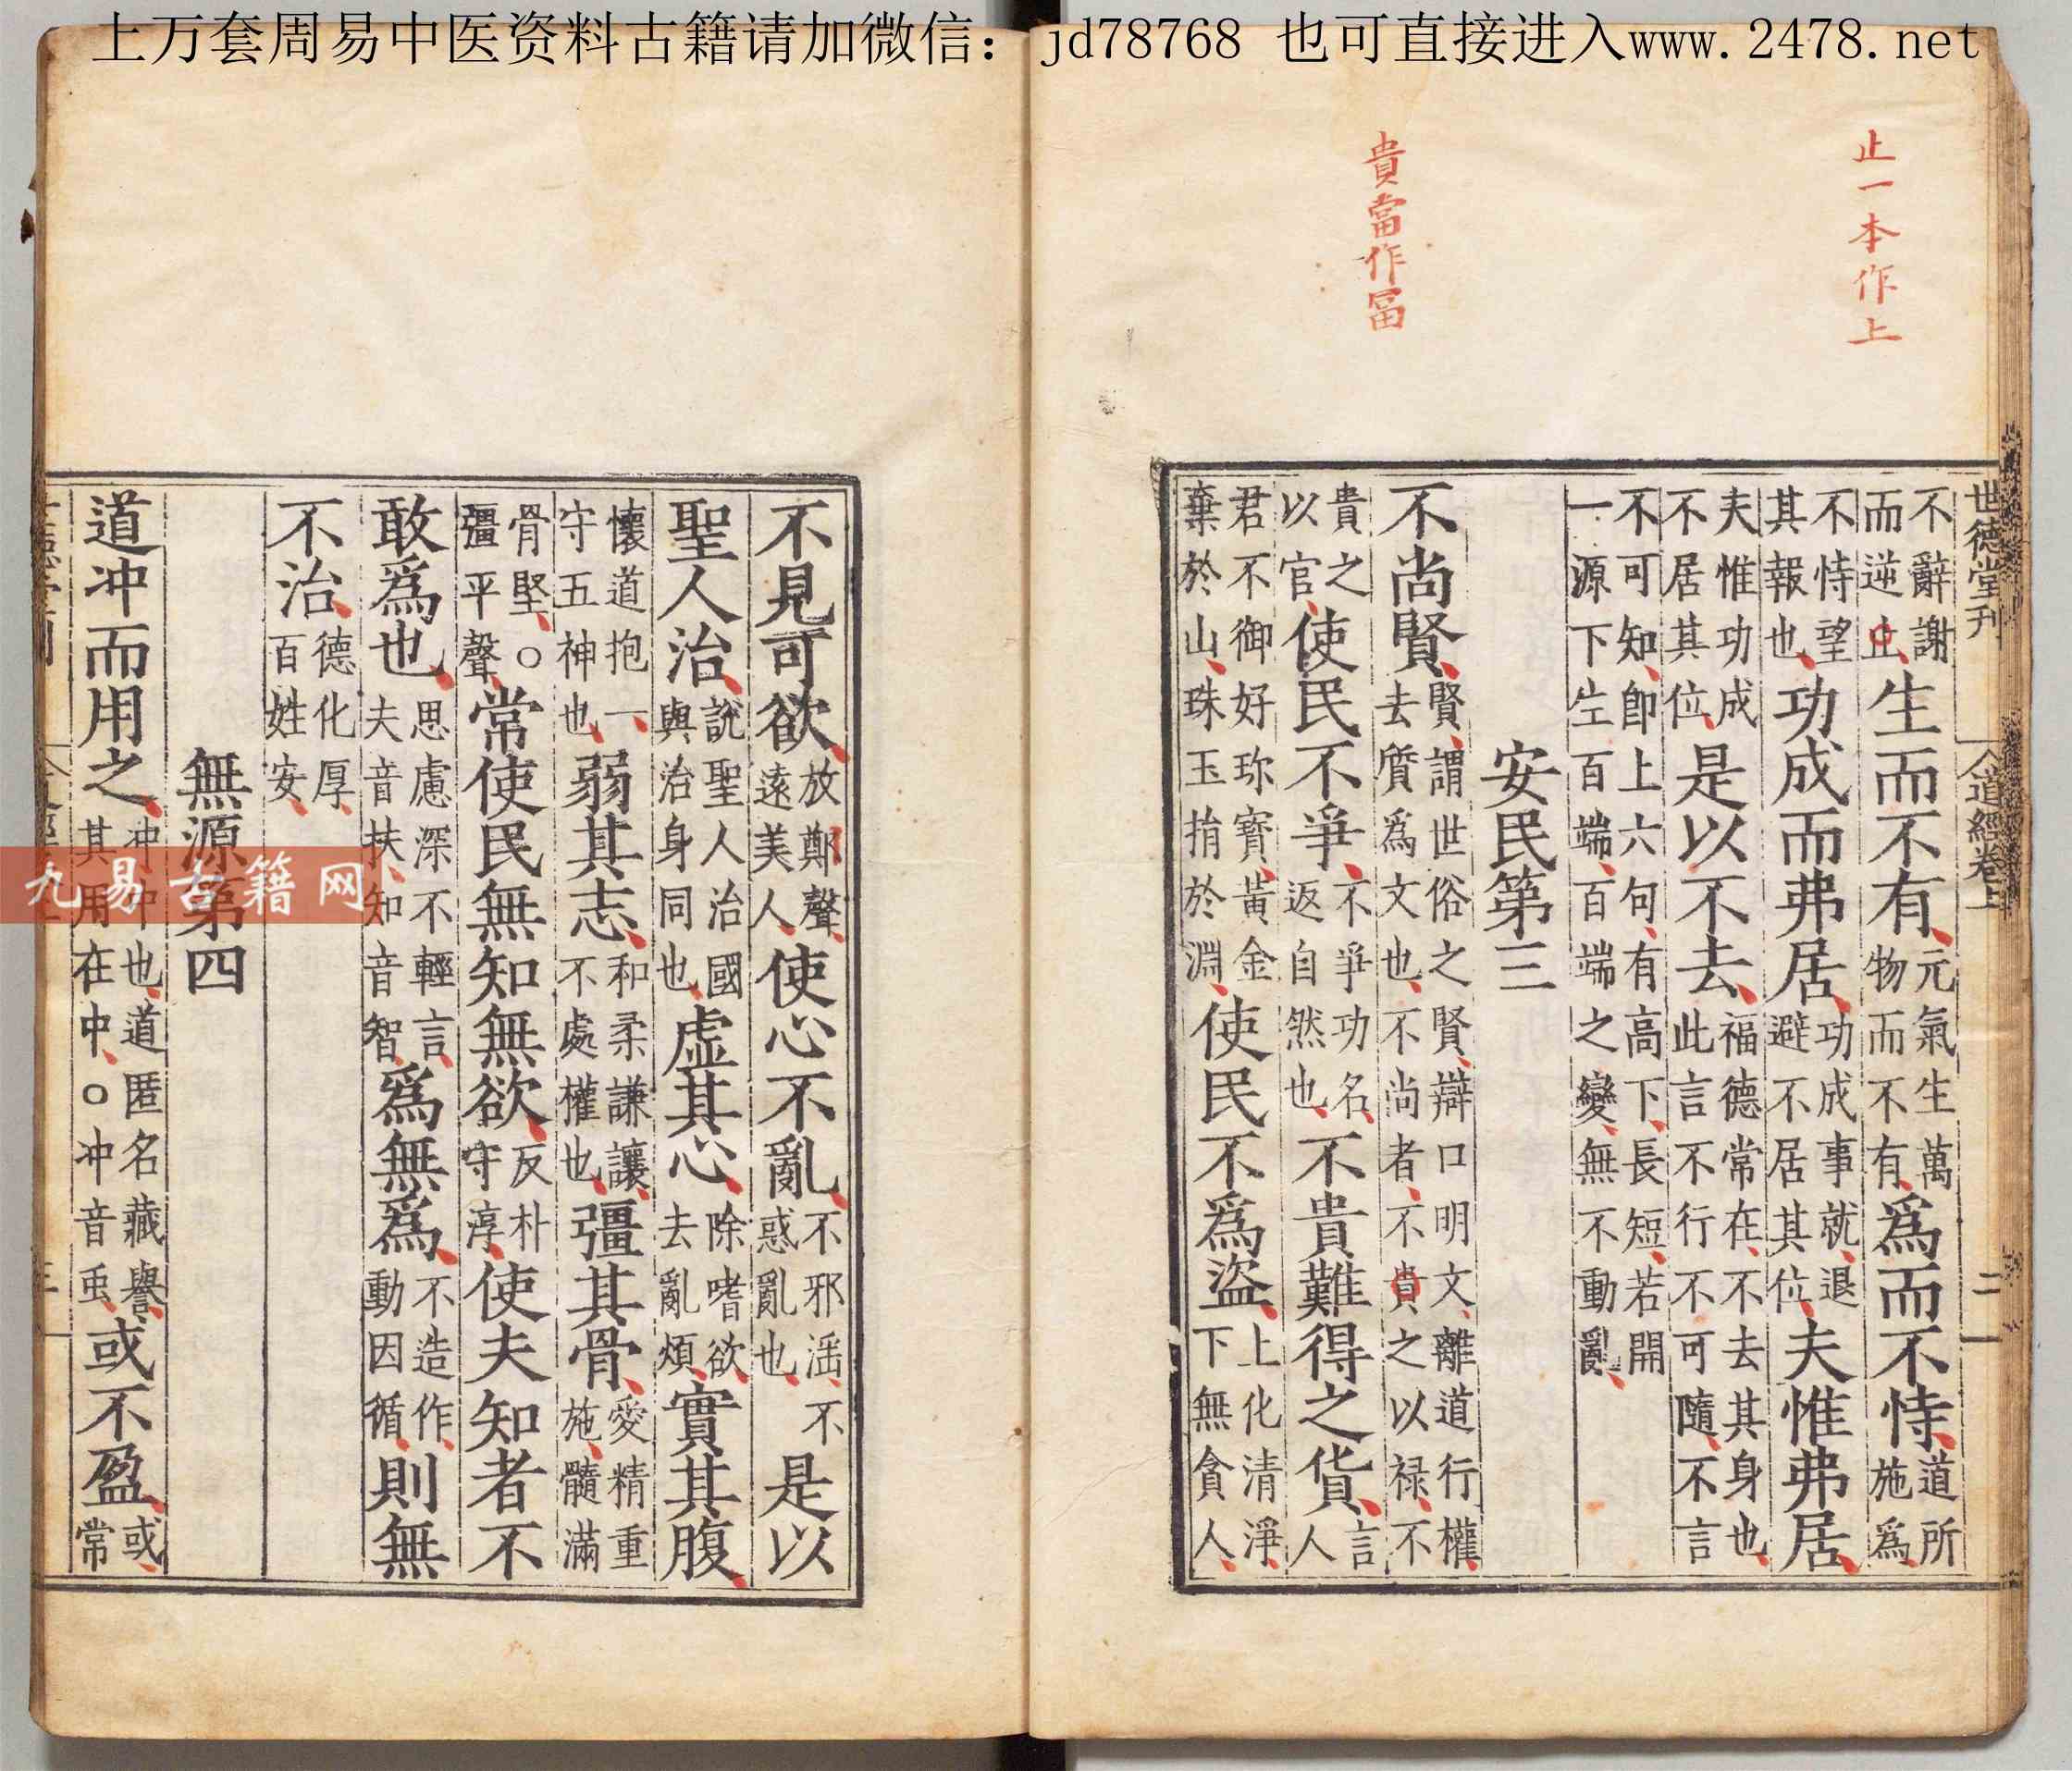 上万套周易中医资料古籍请加微信：jd78768 也可直接进入www.2478.net
止一本作上
貴當作冨
世德堂刊 道經卷上 二
不辭謝
而逆止
生而不有
元氣生萬
物而不有
爲而不恃
道所
施爲
不恃望
其報也
功成而弗居
功成事就退
避不居其位
夫惟弗居
夫惟功成
不居其位
是以不去
福德常在不去其身也
此言不行不可隨不言
不可知即上六句有高下長短若開
一源下生百端百端之變無不動亂
安民第三
不尚賢
賢謂世俗之賢辯口明文離道行權
去質爲文也不尚者不貴之以禄不
貴之
以官
使民不爭
不爭功名
返自然也
不貴難得之貨
言
人
君不御好珎寳黄金
棄於山珠玉捐於淵
使民不爲盜
上化清淨
下無貪人
不見可欲
放鄭聲
遠美人
使心不亂
不邪滛不
惑亂也
是以
聖人治
說聖人治國
與治身同也
虛其心
除嗜欲
去亂煩
實其腹
懷道抱一
守五神也
弱其志
和柔謙讓
不處權也
彊其骨
愛精重
施髓滿
骨堅○
彊平聲
常使民無知無欲
反朴
守淳
使夫知者不
敢爲也
思慮深不輕言
夫音扶知音智
爲無爲
不造作
動因循
則無
不治
德化厚
百姓安
無源第四
道冲而用之
冲中也道匿名藏譽
其用在中○冲音虫
或不盈
或
常
九易古籍网